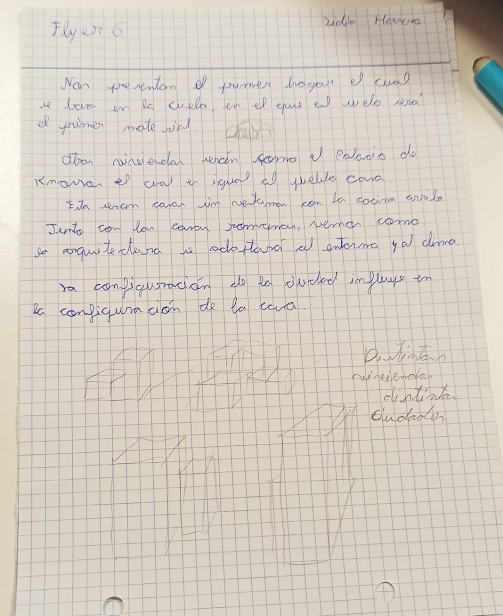 Flyer 6
Lidia Herrero
Nos presentan el primer hogar el cual
se basa en la cueva, en el que el suelo será
el primer material
Otras viviendas serán como el Palacio de
Knossos el cual es igual al pueblo casa
Esta seran casas sin ventanas con la cocina arriba
Junto con las casas romanas, vemos como
la arquitectura se adaptará al entorno y al clima.
La configuración de la ciudad influye en
la configuración de la casa.
Distintas
viviendas
distintas
ciudades